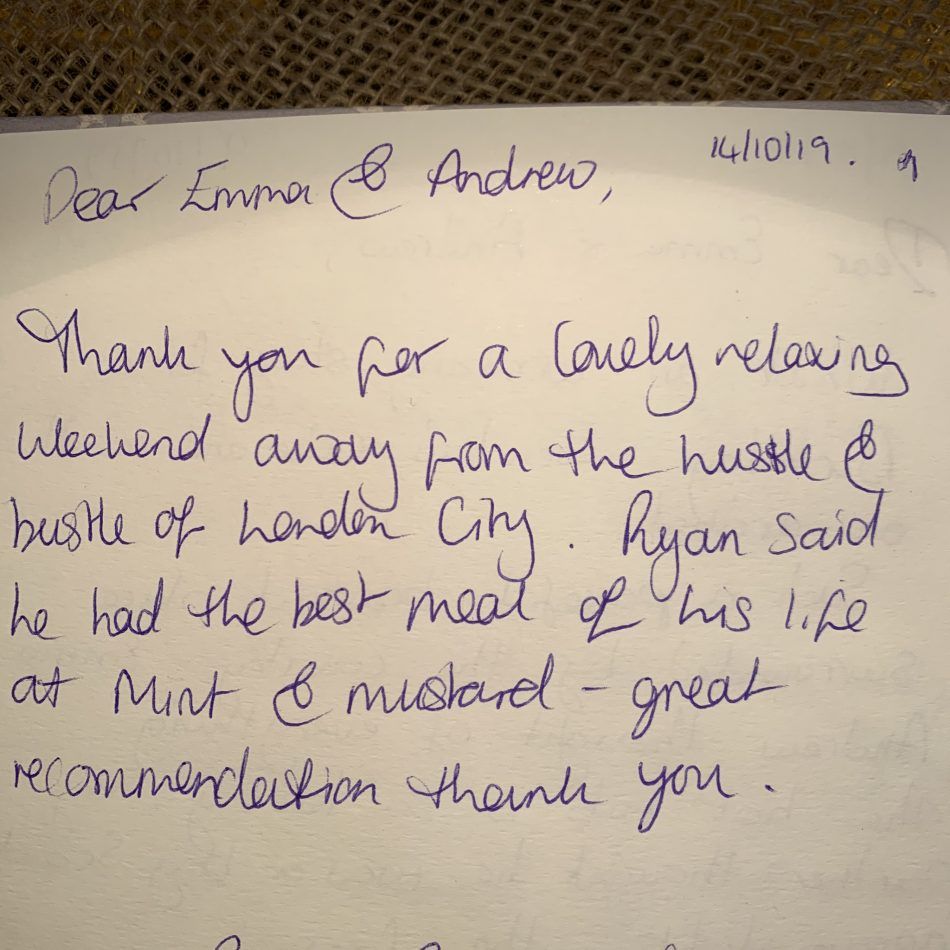 14/10/19.
Dear Emma & Andrew,
Thank you for a lovely relaxing
weekend away from the hustle &
bustle of London City. Ryan said
he had the best meal of his life
at Mint & mustard - great
recommendation thank you.